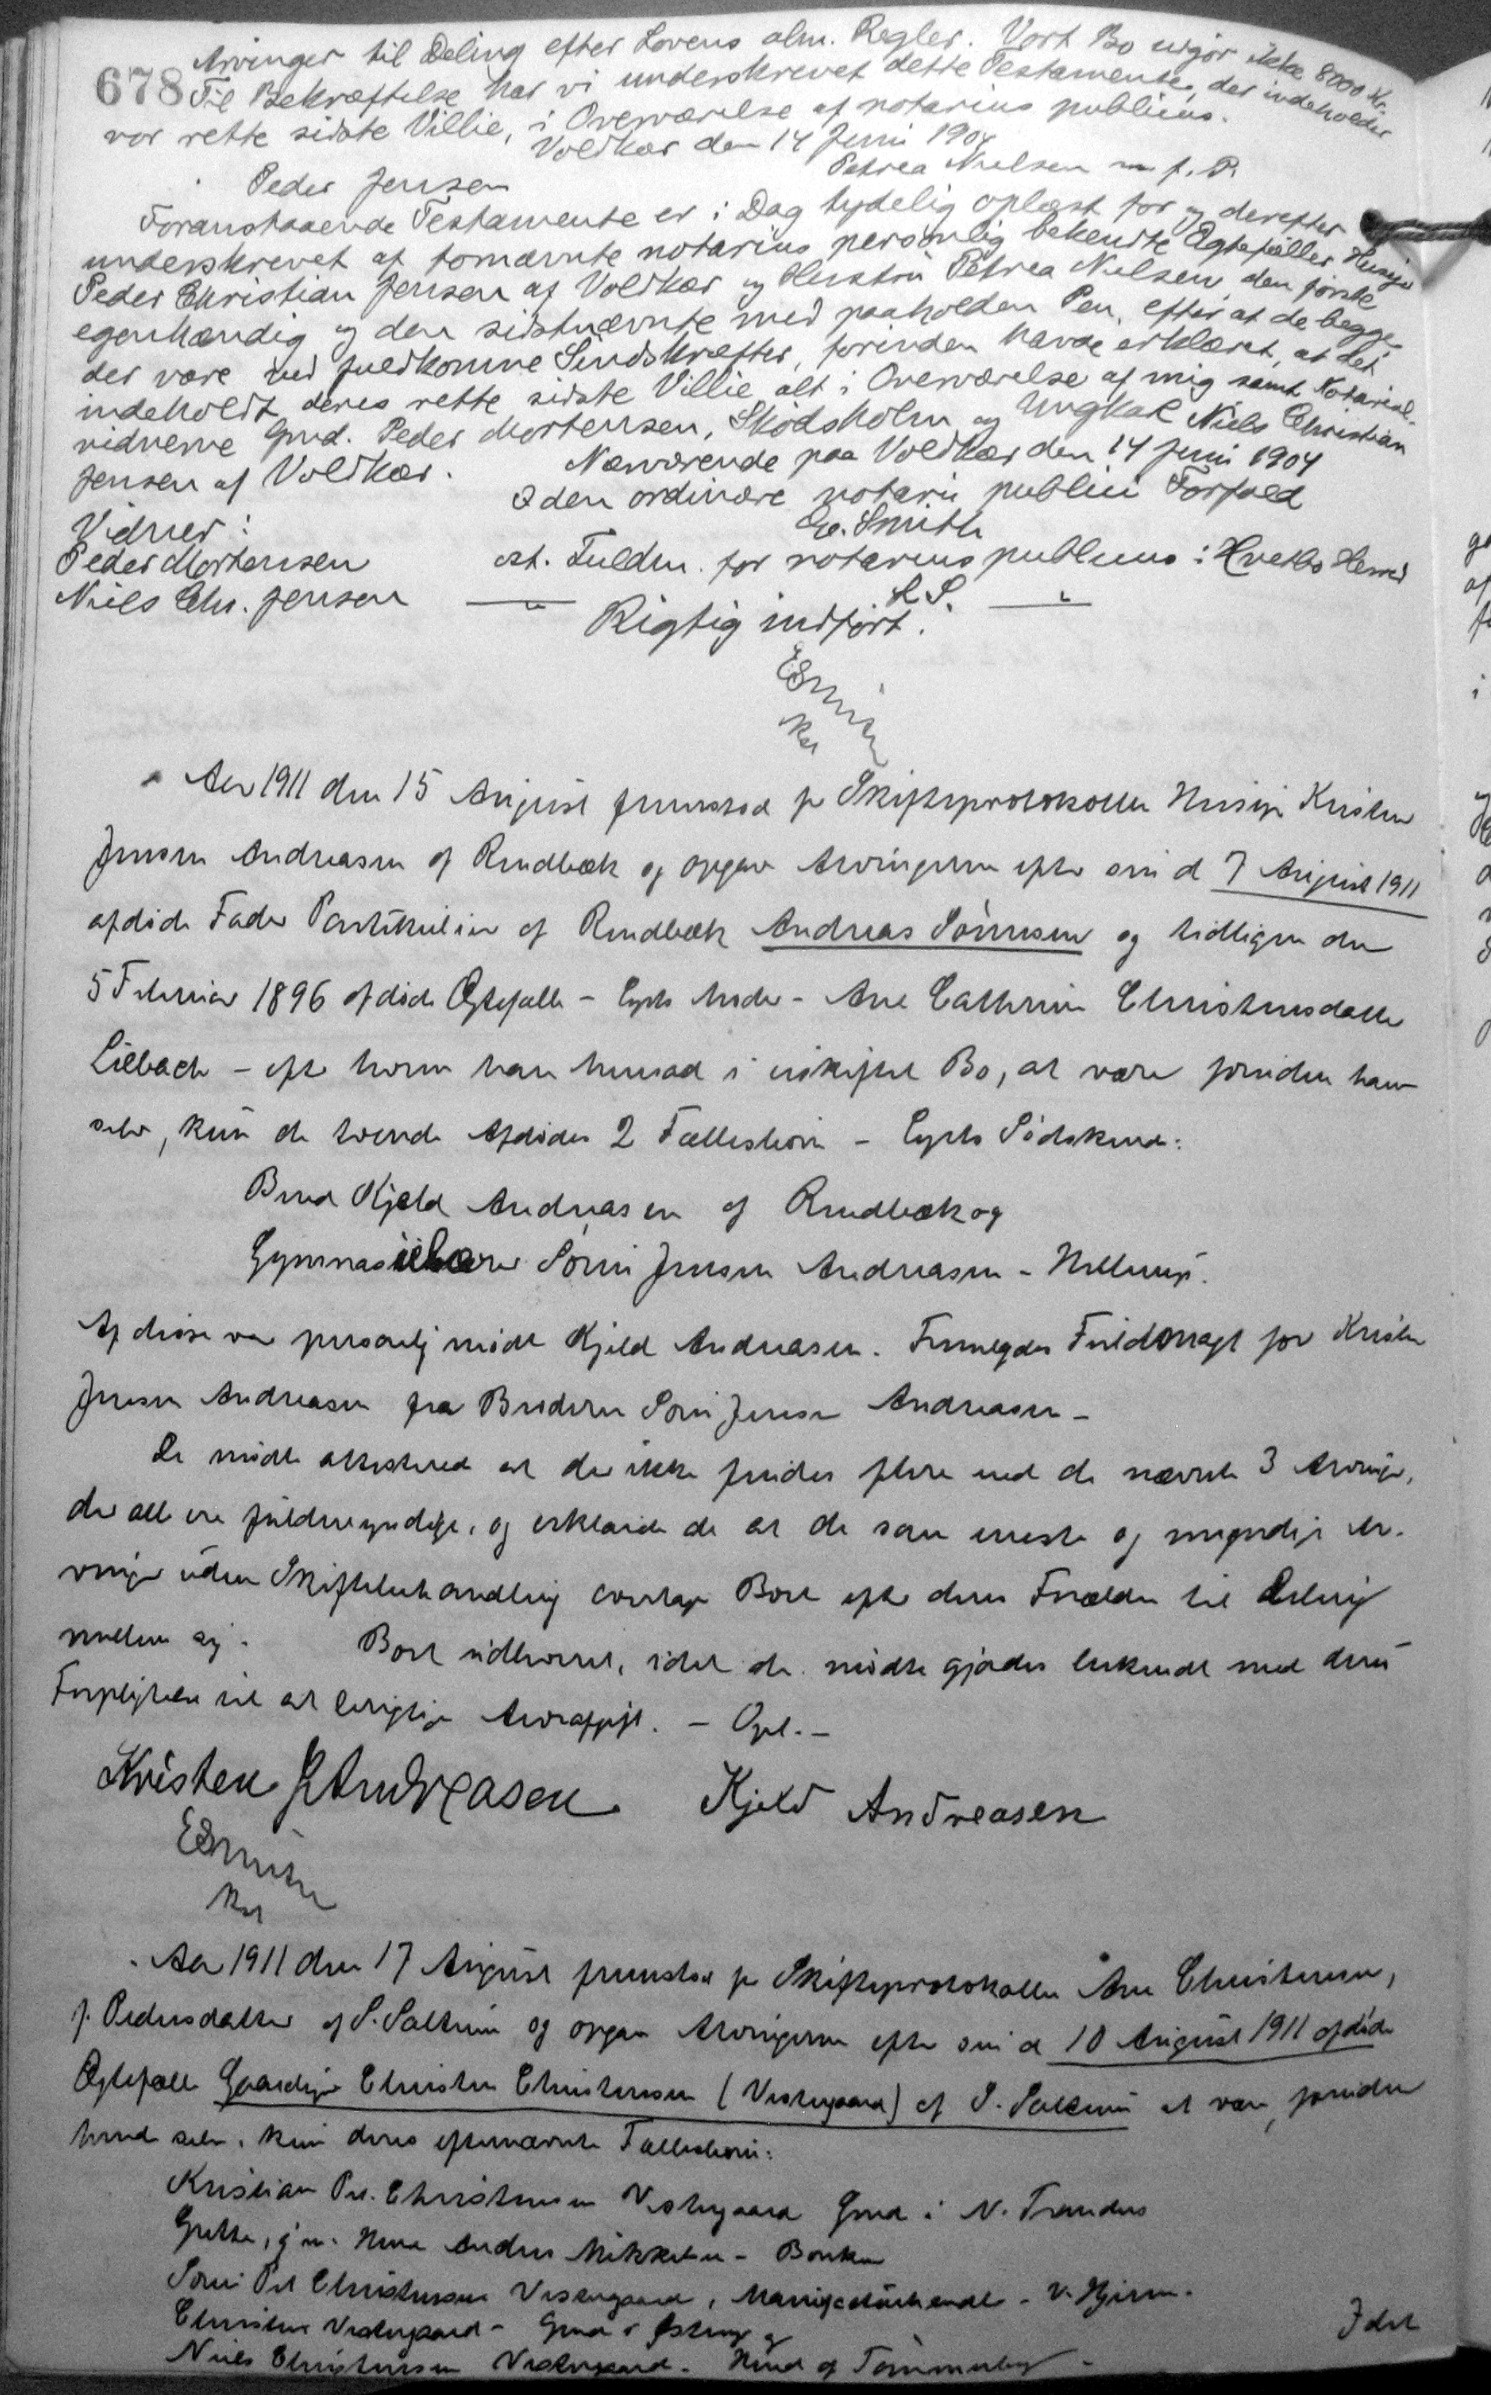 Arvinger til Deling efter Lovens alm. Regler. Vort Bo udgør ikke 8000 Kr.
678 Til Bekræftelse har vi underskrevet dette Testamente, der indeholder
vor rette sidste Villie, i Overværelse af notarius publicus.
Voldkær den 14 Juni 1904
Peder Jensen Petrea Nielsen m. f. P.
Foranstaaende Testamente er i Dag tydelig oplæst for og derefter
underskrevet af fornævnte notarius personlig bekendte Ægtefæller Husejer
Peder Christian Jensen af Voldkær og Hustru Petrea Nielsen, den første
egenhændig og den sidstnævnte med paaholden Pen, efter at de begge
der vare ved fuldkomne Sindskræfter, forinden havde erklæret, at det
indeholdt deres rette sidste Villie alt i Overværelse af mig samt Notarial-
vidnerne Gmd. Peder Mortensen, Skødsholm og Ungkarl Niels Christian
Jensen af Voldkær.
Nærværende paa Voldkær den 14 Juni 1904
I den ordinære notarii publici Forfald
E. Smith
Vidner:
Peder Mortensen cst. Fuldm. for notarius publicus i Hvetbo Herred
Niels Chr. Jensen L. S.
Rigtig indført.
ESmith
Kst
Aar 1911 den 15 August fremstod for Skifteprotokollen Husejer Kristen
Jensen Andreasen af Rendbæk og opgav Arvingerne efter sin d 7 August 1911
afdøde Fader Partikulier af Rendbæk Andreas Sørensen og tidligere den
5 Februar 1896 afdøde Ægtefælle - Cpts Moder - Ane Cathrine Christensdatter
Lilbæch - efter hvem han hensad i uskiftet Bo, at være foruden ham
selv, kun de tvende Afdødes 2 Fællesbørn - Cpts Sødskende:
Gmd Kjeld Andreasen af Rendbæk og
Gymnasielærer Søren Jensen Andreasen - Hellerup.
Af disse var personlig mødt Kjeld Andreasen. Fremlagdes Fuldmagt for Kristen
Jensen Andreasen fra Broderen Søren Jensen Andreasen -
De mødte attesterede at der ikke findes flere end de nævnte 3 Arvinger,
der alle ere fuldmyndige, og erklærede de at de som eneste og myndige Ar-
vinger uden Skiftebehandling overtage Boet efter deres Forældre til Deling
mellem sig. Boet udleveret, idet de mødte gjordes bekendt med deres
Forpligtelse til at berigtige Arveafgift. - Opl. -
Kristen J Andreasen Kjeld Andreasen
ESmith
Kst
Aar 1911 den 17 August fremstod for Skifteprotokollen Ane Christensen,
f. Pedersdatter af S. Saltum og opgav Arvingerne efter sin d 10 August 1911 afdøde
Ægtefælle Gaardejer Christen Christensen (Vestergaard) af S. Saltum at være, foruden
hende selv, kun deres efternævnte Fællesbørn:
Kristian Ped. Christensen Vestergaard Gmd i N. Tranders
Grethe, g. m. Hmd Anders Mikkelsen -
Søren Ped Christensen Vestergaard, - V. Hjerm.
Christen Vestergaard - Gmd i og
Niels Christensen Vestergaard - Hmd af Tømmerby -
Idet